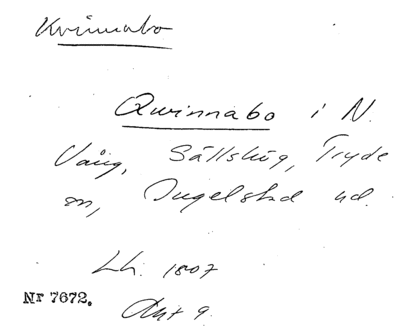 Kvinnabo
Qwinnabo i N.
Vång, Sällshög, Tryde
sn, Ingelstad hd.
Lh. 1807
Akt 9.
Nr 7672.